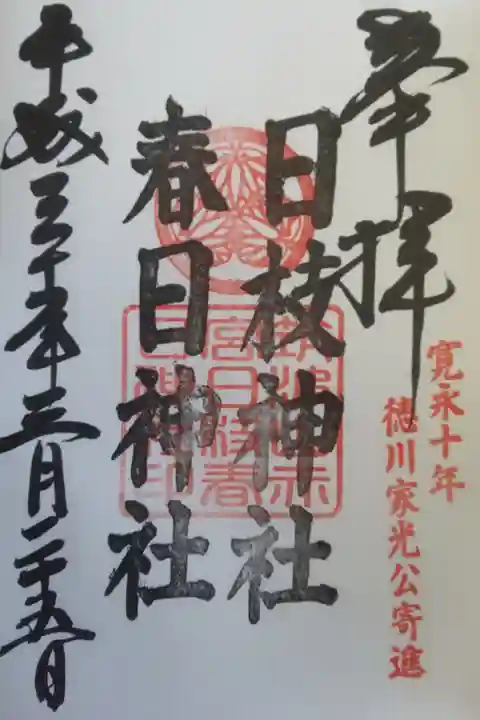 奉拝
寛永十年
徳川家光公寄進
日枝神社
春日神社
平成三十年三月二十五日